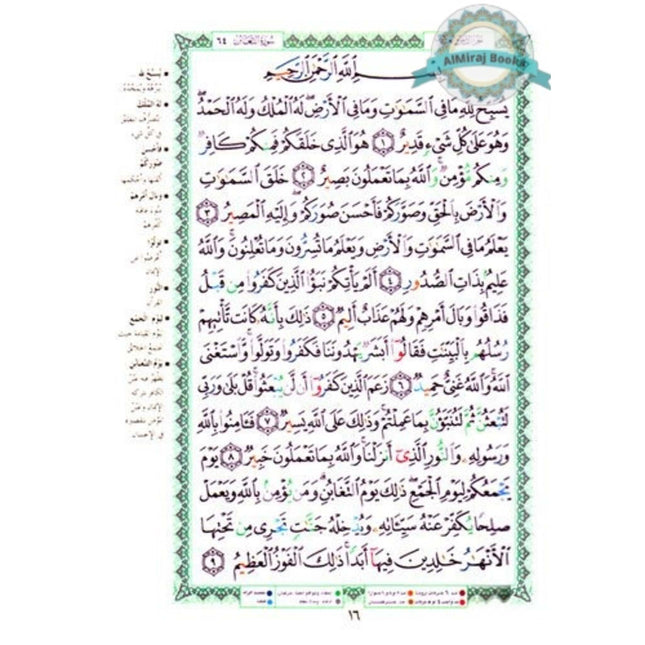 سورة التغابن ٦٤
AlMiraj Books
بسم الله الرحمن الرحيم
يُسَبِّحُ لِلَّهِ مَا فِي السَّمَٰوَٰتِ وَمَا فِي الْأَرْضِ لَهُ الْمُلْكُ وَلَهُ الْحَمْدُ
وَهُوَ عَلَىٰ كُلِّ شَيْءٍ قَدِيرٌ ١ هُوَ الَّذِي خَلَقَكُمْ فَمِنكُمْ كَافِرٌ
وَمِنكُم مُّؤْمِنٌ وَاللَّهُ بِمَا تَعْمَلُونَ بَصِيرٌ ٢ خَلَقَ السَّمَٰوَٰتِ
وَالْأَرْضَ بِالْحَقِّ وَصَوَّرَكُمْ فَأَحْسَنَ صُوَرَكُمْ وَإِلَيْهِ الْمَصِيرُ ٣
يَعْلَمُ مَا فِي السَّمَٰوَٰتِ وَالْأَرْضِ وَيَعْلَمُ مَا تُسِرُّونَ وَمَا تُعْلِنُونَ وَاللَّهُ
عَلِيمٌ بِذَاتِ الصُّدُورِ ٤ أَلَمْ يَأْتِكُمْ نَبَؤُا الَّذِينَ كَفَرُوا مِن قَبْلُ
فَذَاقُوا وَبَالَ أَمْرِهِمْ وَلَهُمْ عَذَابٌ أَلِيمٌ ٥ ذَٰلِكَ بِأَنَّهُ كَانَت تَّأْتِيهِمْ
رُسُلُهُم بِالْبَيِّنَٰتِ فَقَالُوا أَبَشَرٌ يَهْدُونَنَا فَكَفَرُوا وَتَوَلَّوا وَّاسْتَغْنَى
اللَّهُ وَاللَّهُ غَنِيٌّ حَمِيدٌ ٦ زَعَمَ الَّذِينَ كَفَرُوا أَن لَّن يُبْعَثُوا قُلْ بَلَىٰ وَرَبِّي
لَتُبْعَثُنَّ ثُمَّ لَتُنَبَّؤُنَّ بِمَا عَمِلْتُمْ وَذَٰلِكَ عَلَى اللَّهِ يَسِيرٌ ٧ فَـَٔامِنُوا بِاللَّهِ
وَرَسُولِهِ وَالنُّورِ الَّذِي أَنزَلْنَا وَاللَّهُ بِمَا تَعْمَلُونَ خَبِيرٌ ٨ يَوْمَ
يَجْمَعُكُمْ لِيَوْمِ الْجَمْعِ ذَٰلِكَ يَوْمُ التَّغَابُنِ وَمَن يُؤْمِن بِاللَّهِ وَيَعْمَلْ
صَٰلِحًا يُكَفِّرْ عَنْهُ سَيِّـَٔاتِهِ وَيُدْخِلْهُ جَنَّٰتٍ تَجْرِي مِن تَحْتِهَا
الْأَنْهَٰرُ خَٰلِدِينَ فِيهَا أَبَدًا ذَٰلِكَ الْفَوْزُ الْعَظِيمُ ٩
يُسَبِّحُ لِلَّهِ
لَهُ الْمُلْكُ
فَأَحْسَنَ
صُوَرَكُمْ
وَبَالَ أَمْرِهِمْ
تَوَلَّوا
النُّورِ
لِيَوْمِ الْجَمْعِ
يَوْمُ التَّغَابُنِ
١٦